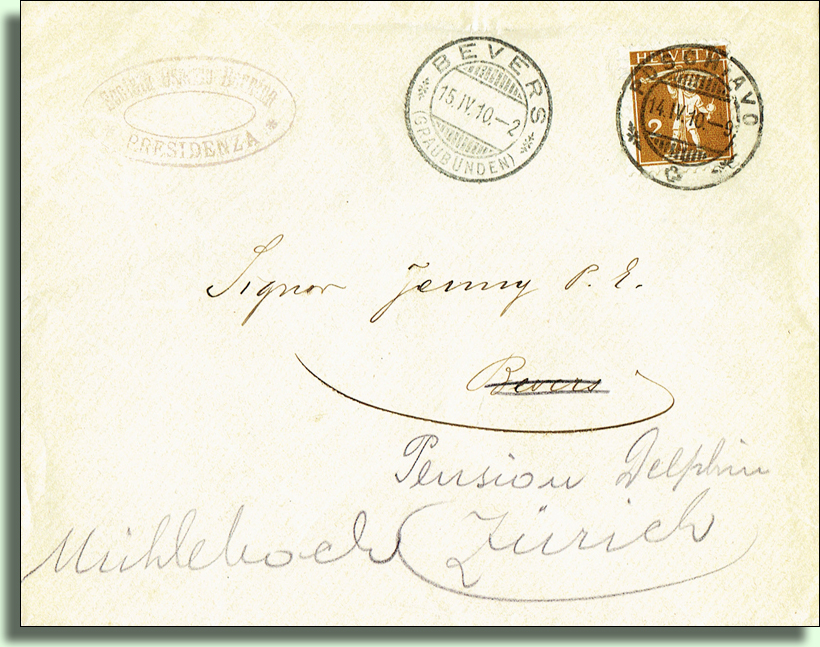 PRESIDENZA
BEVERS
15.IV.10.–2
(GRAUBÜNDEN)
HELVETIA
2
POSCHIAVO
14.IV.10.–9
Signor Jenny P. E.
Bevers
Pension Delphin
Mühlebach (Zürich